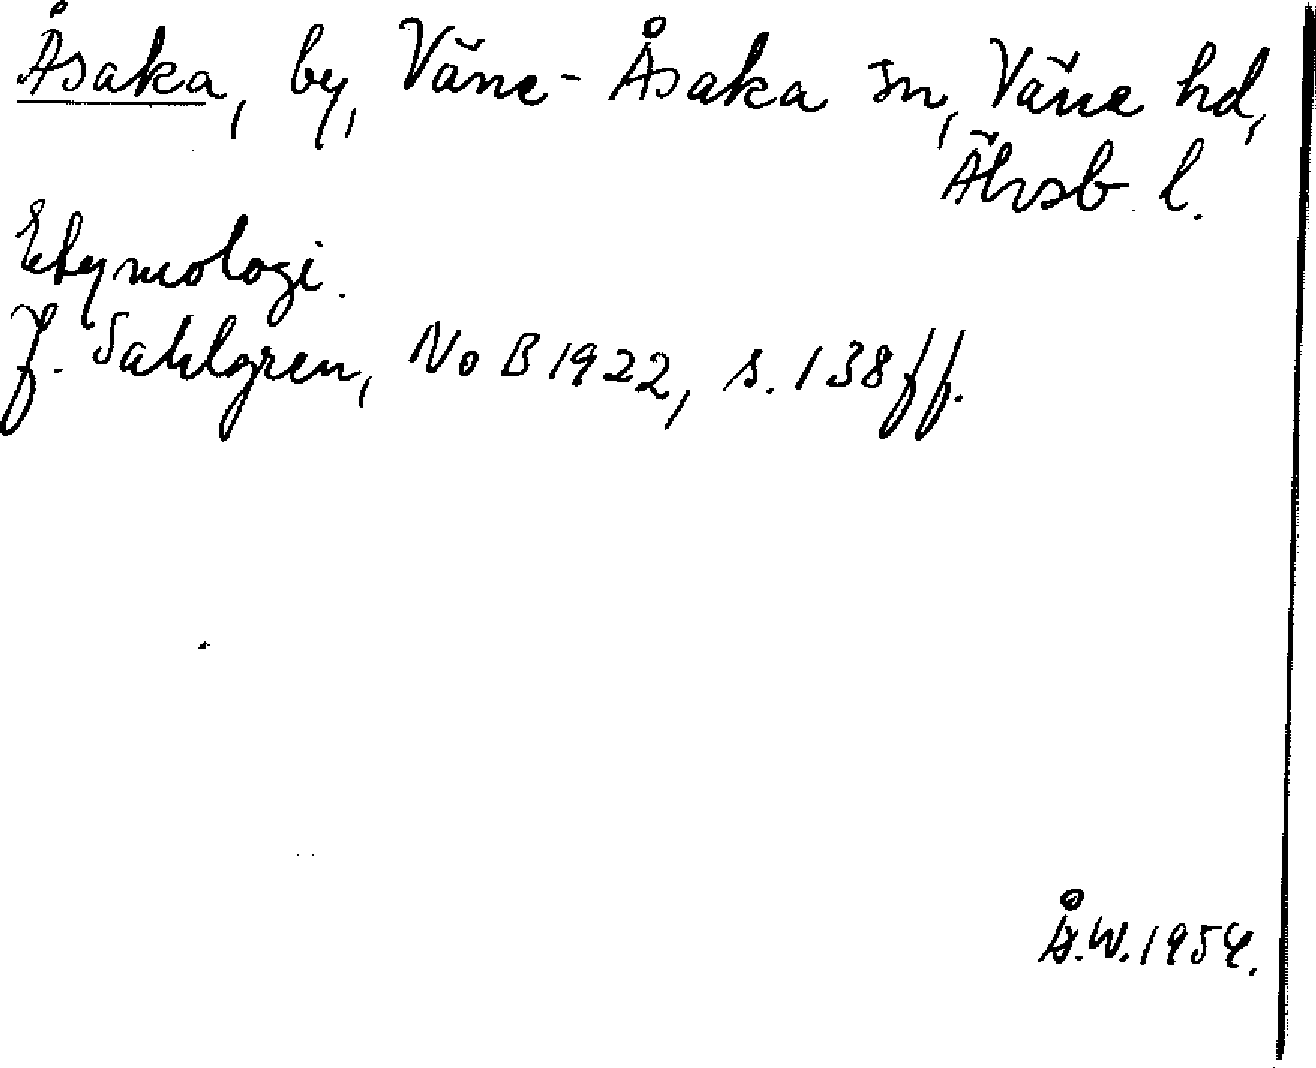 Åsaka, by, Väne-Åsaka sn, Väne hd,
Älvsb l.
Etymologi.
J. Sahlgren, NoB 1922, s. 138ff.
Å.W. 1954.